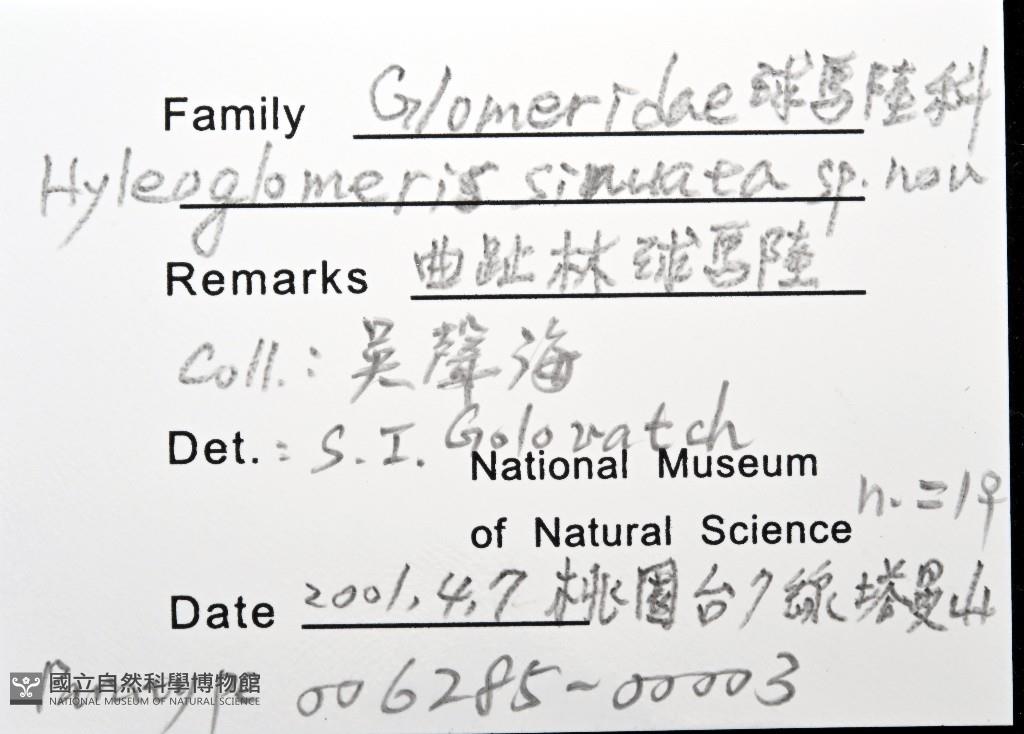 Family Glomeridae 球馬陸科
Hyleoglomeris sinuata sp. nov
Remarks 曲趾林球馬陸
Coll.: 吳聲海
Det.: S. I. Golovatch
National Museum
n.=1♀
of Natural Science
Date 2001.4.7 桃園台7線塔曼山
006285-00003
國立自然科學博物館
NATIONAL MUSEUM OF NATURAL SCIENCE